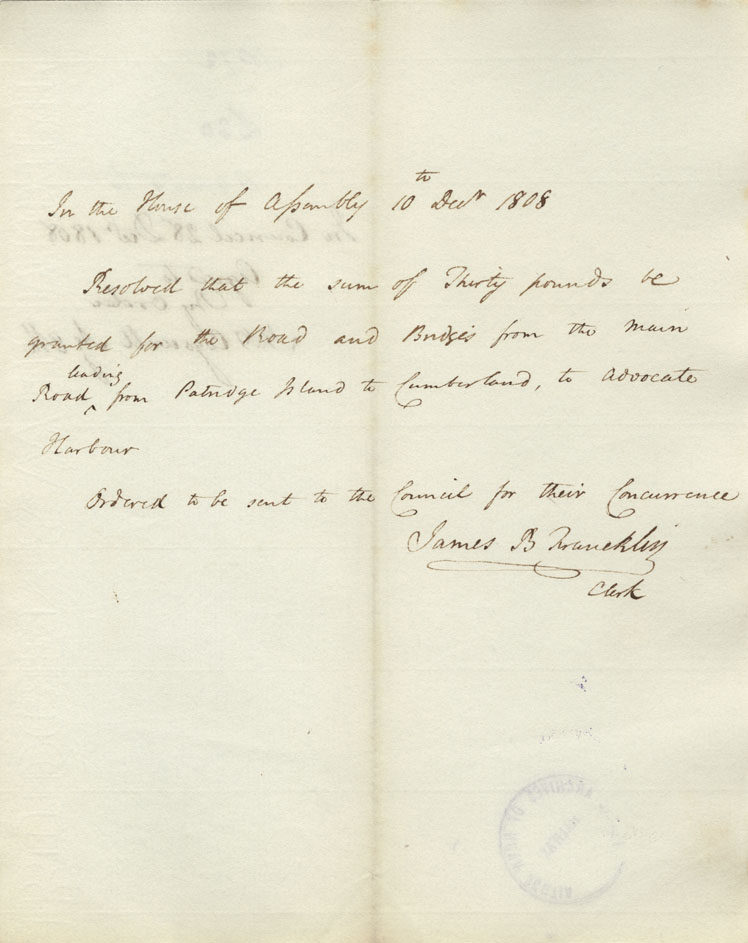 In the House of Assembly 10th Decr 1808
Resolved that the sum of Thirty pounds be
granted for the Road and Bridges from the main
Road leading from Patridge Island to Cumberland, to Advocate
Harbour
Ordered to be sent to the Council for their Concurrence
James B Francklin
Clerk
In Council 28 Decr 1808
ARCHIVES OF NOVA SCOTIA